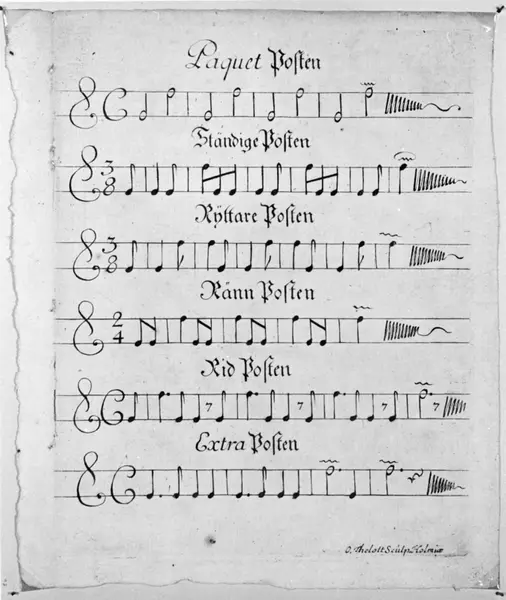 Paquet Posten
Ständige Posten
3
8
Ryttare Posten
3
8
Ränn Posten
2
4
Rid Posten
Extra Posten
O. Thelott Sculp. Holmiæ